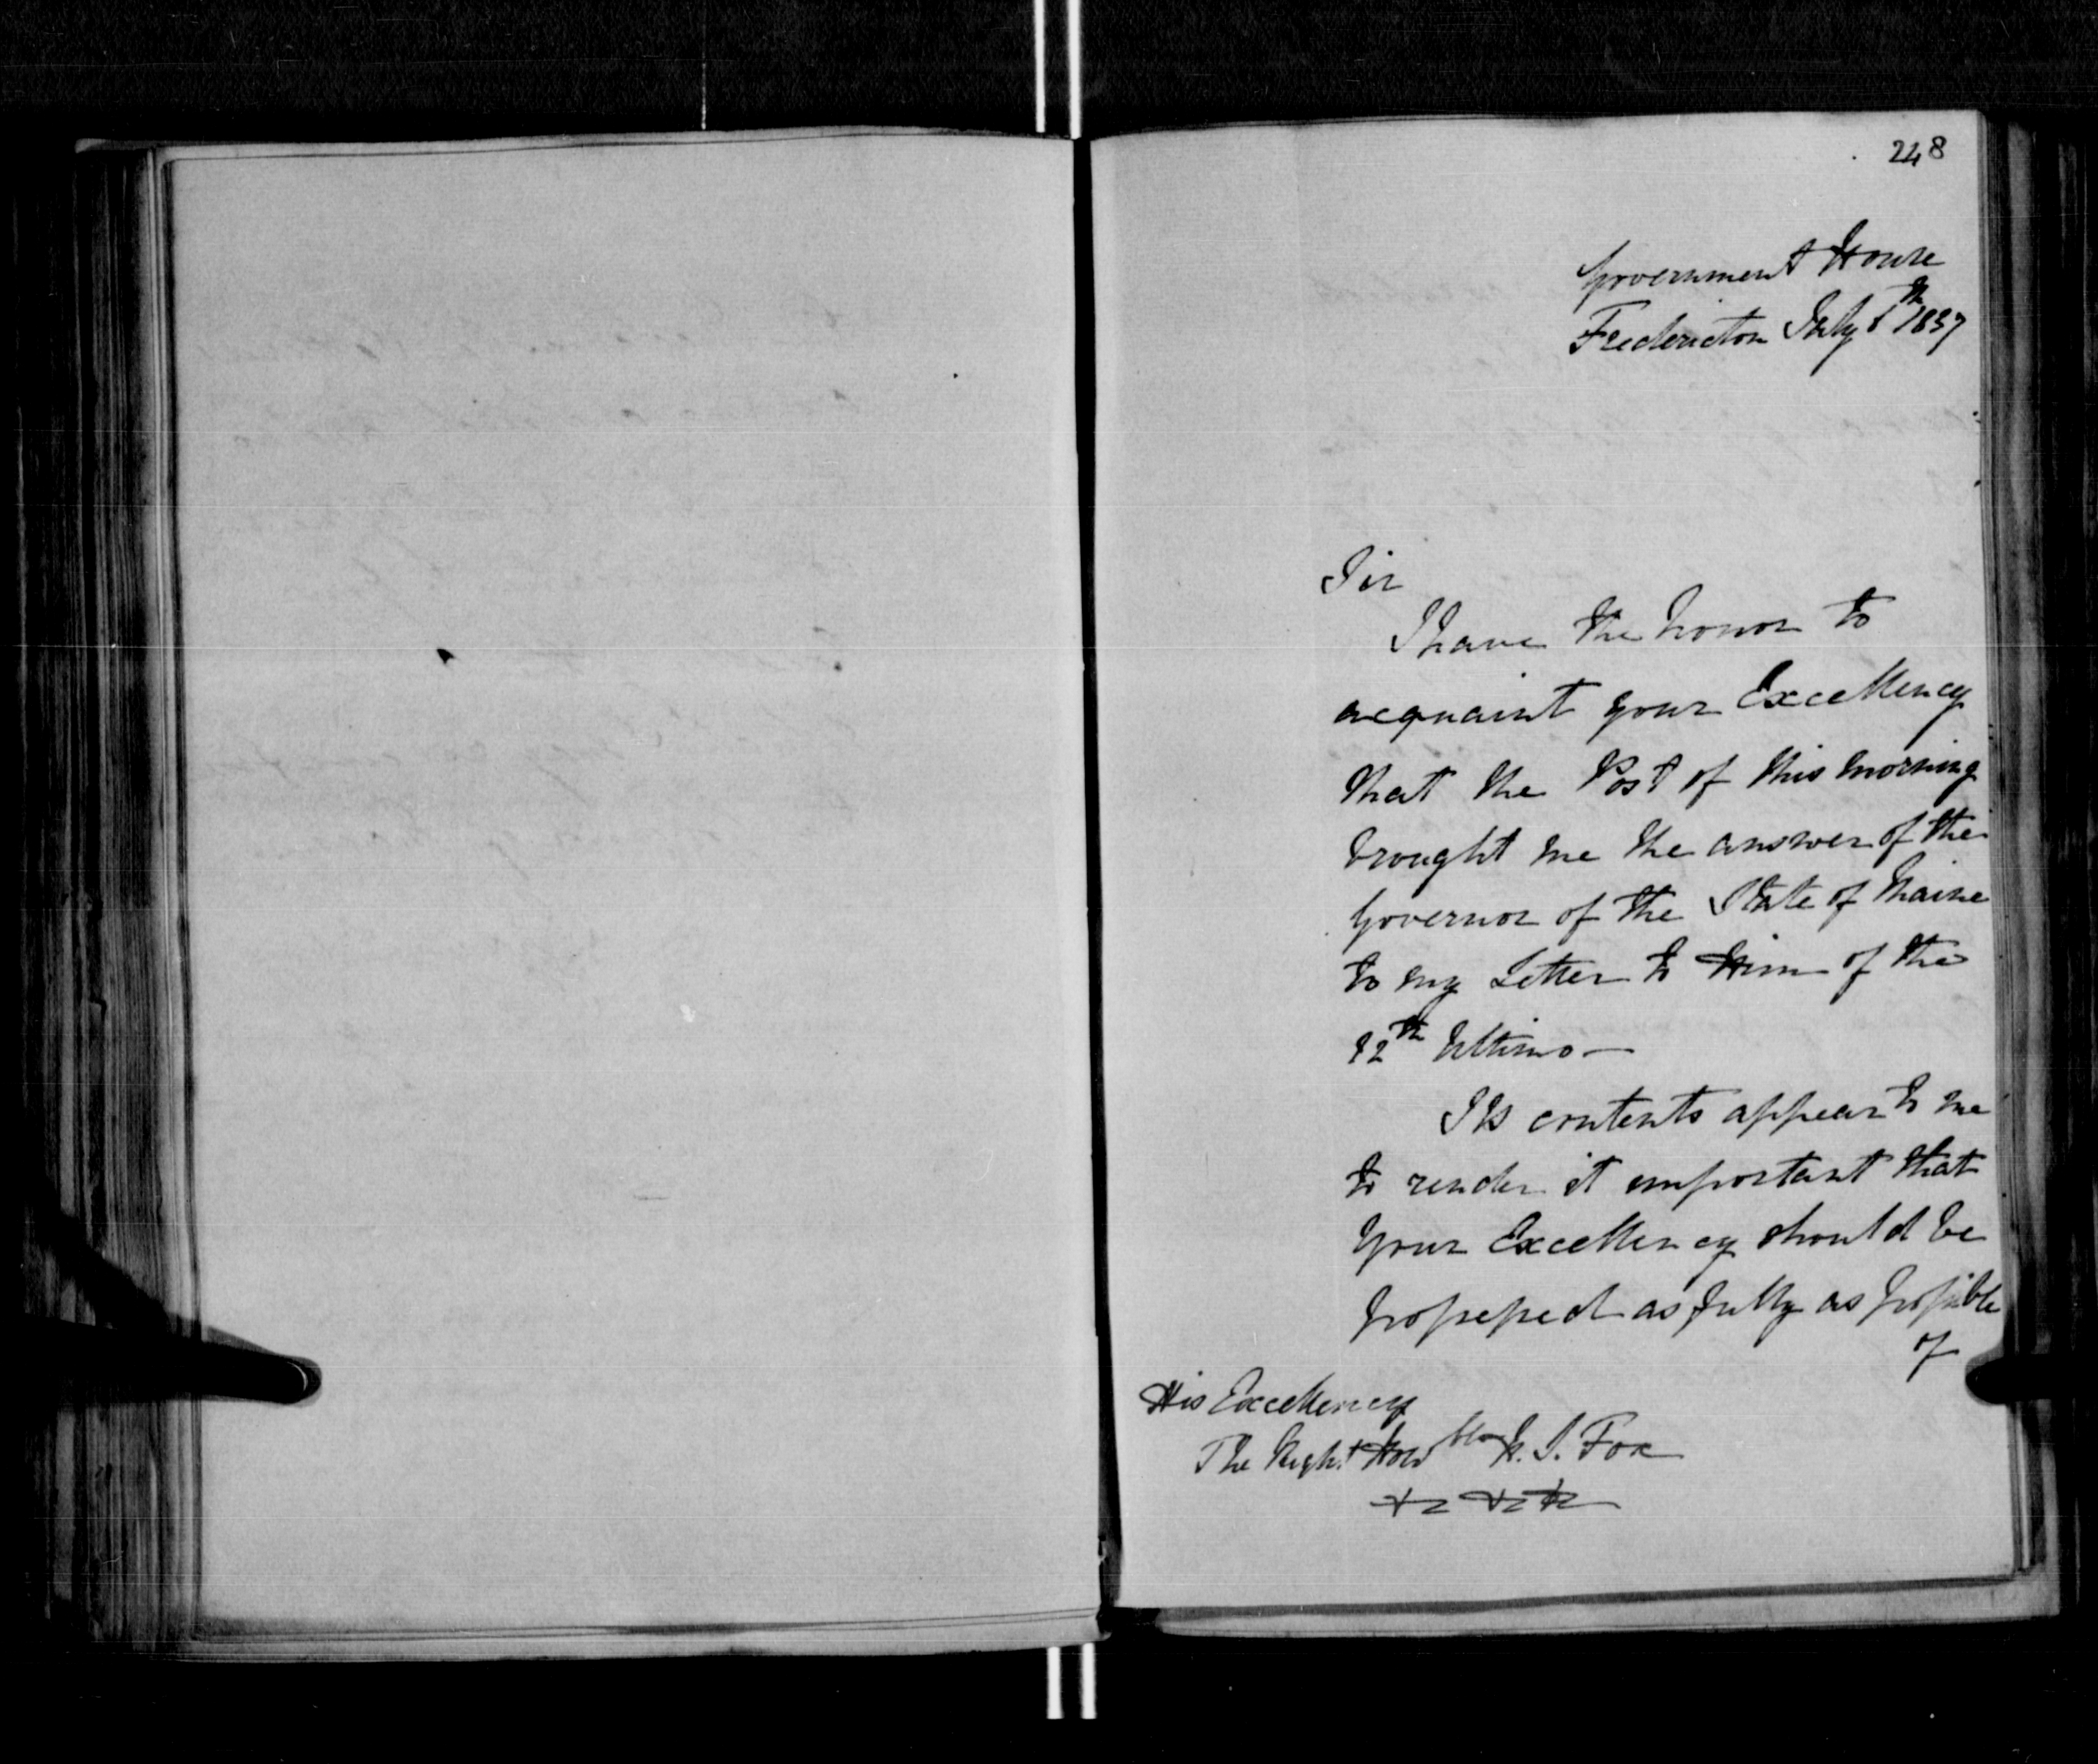 248
Government House
Fredericton July 1837
Sir
I have the honor to
acquaint your Excellency
that the Post of this morning
brought me the answer of the
Governor of the State of Maine
to my Letter to Him of the
12th Ultimo —
Its contents appear to me
to render it important that
Your Excellency should be
possessed as fully as possible
of
His Excellency
The Right Honble H. S. Fox
&c &c &c